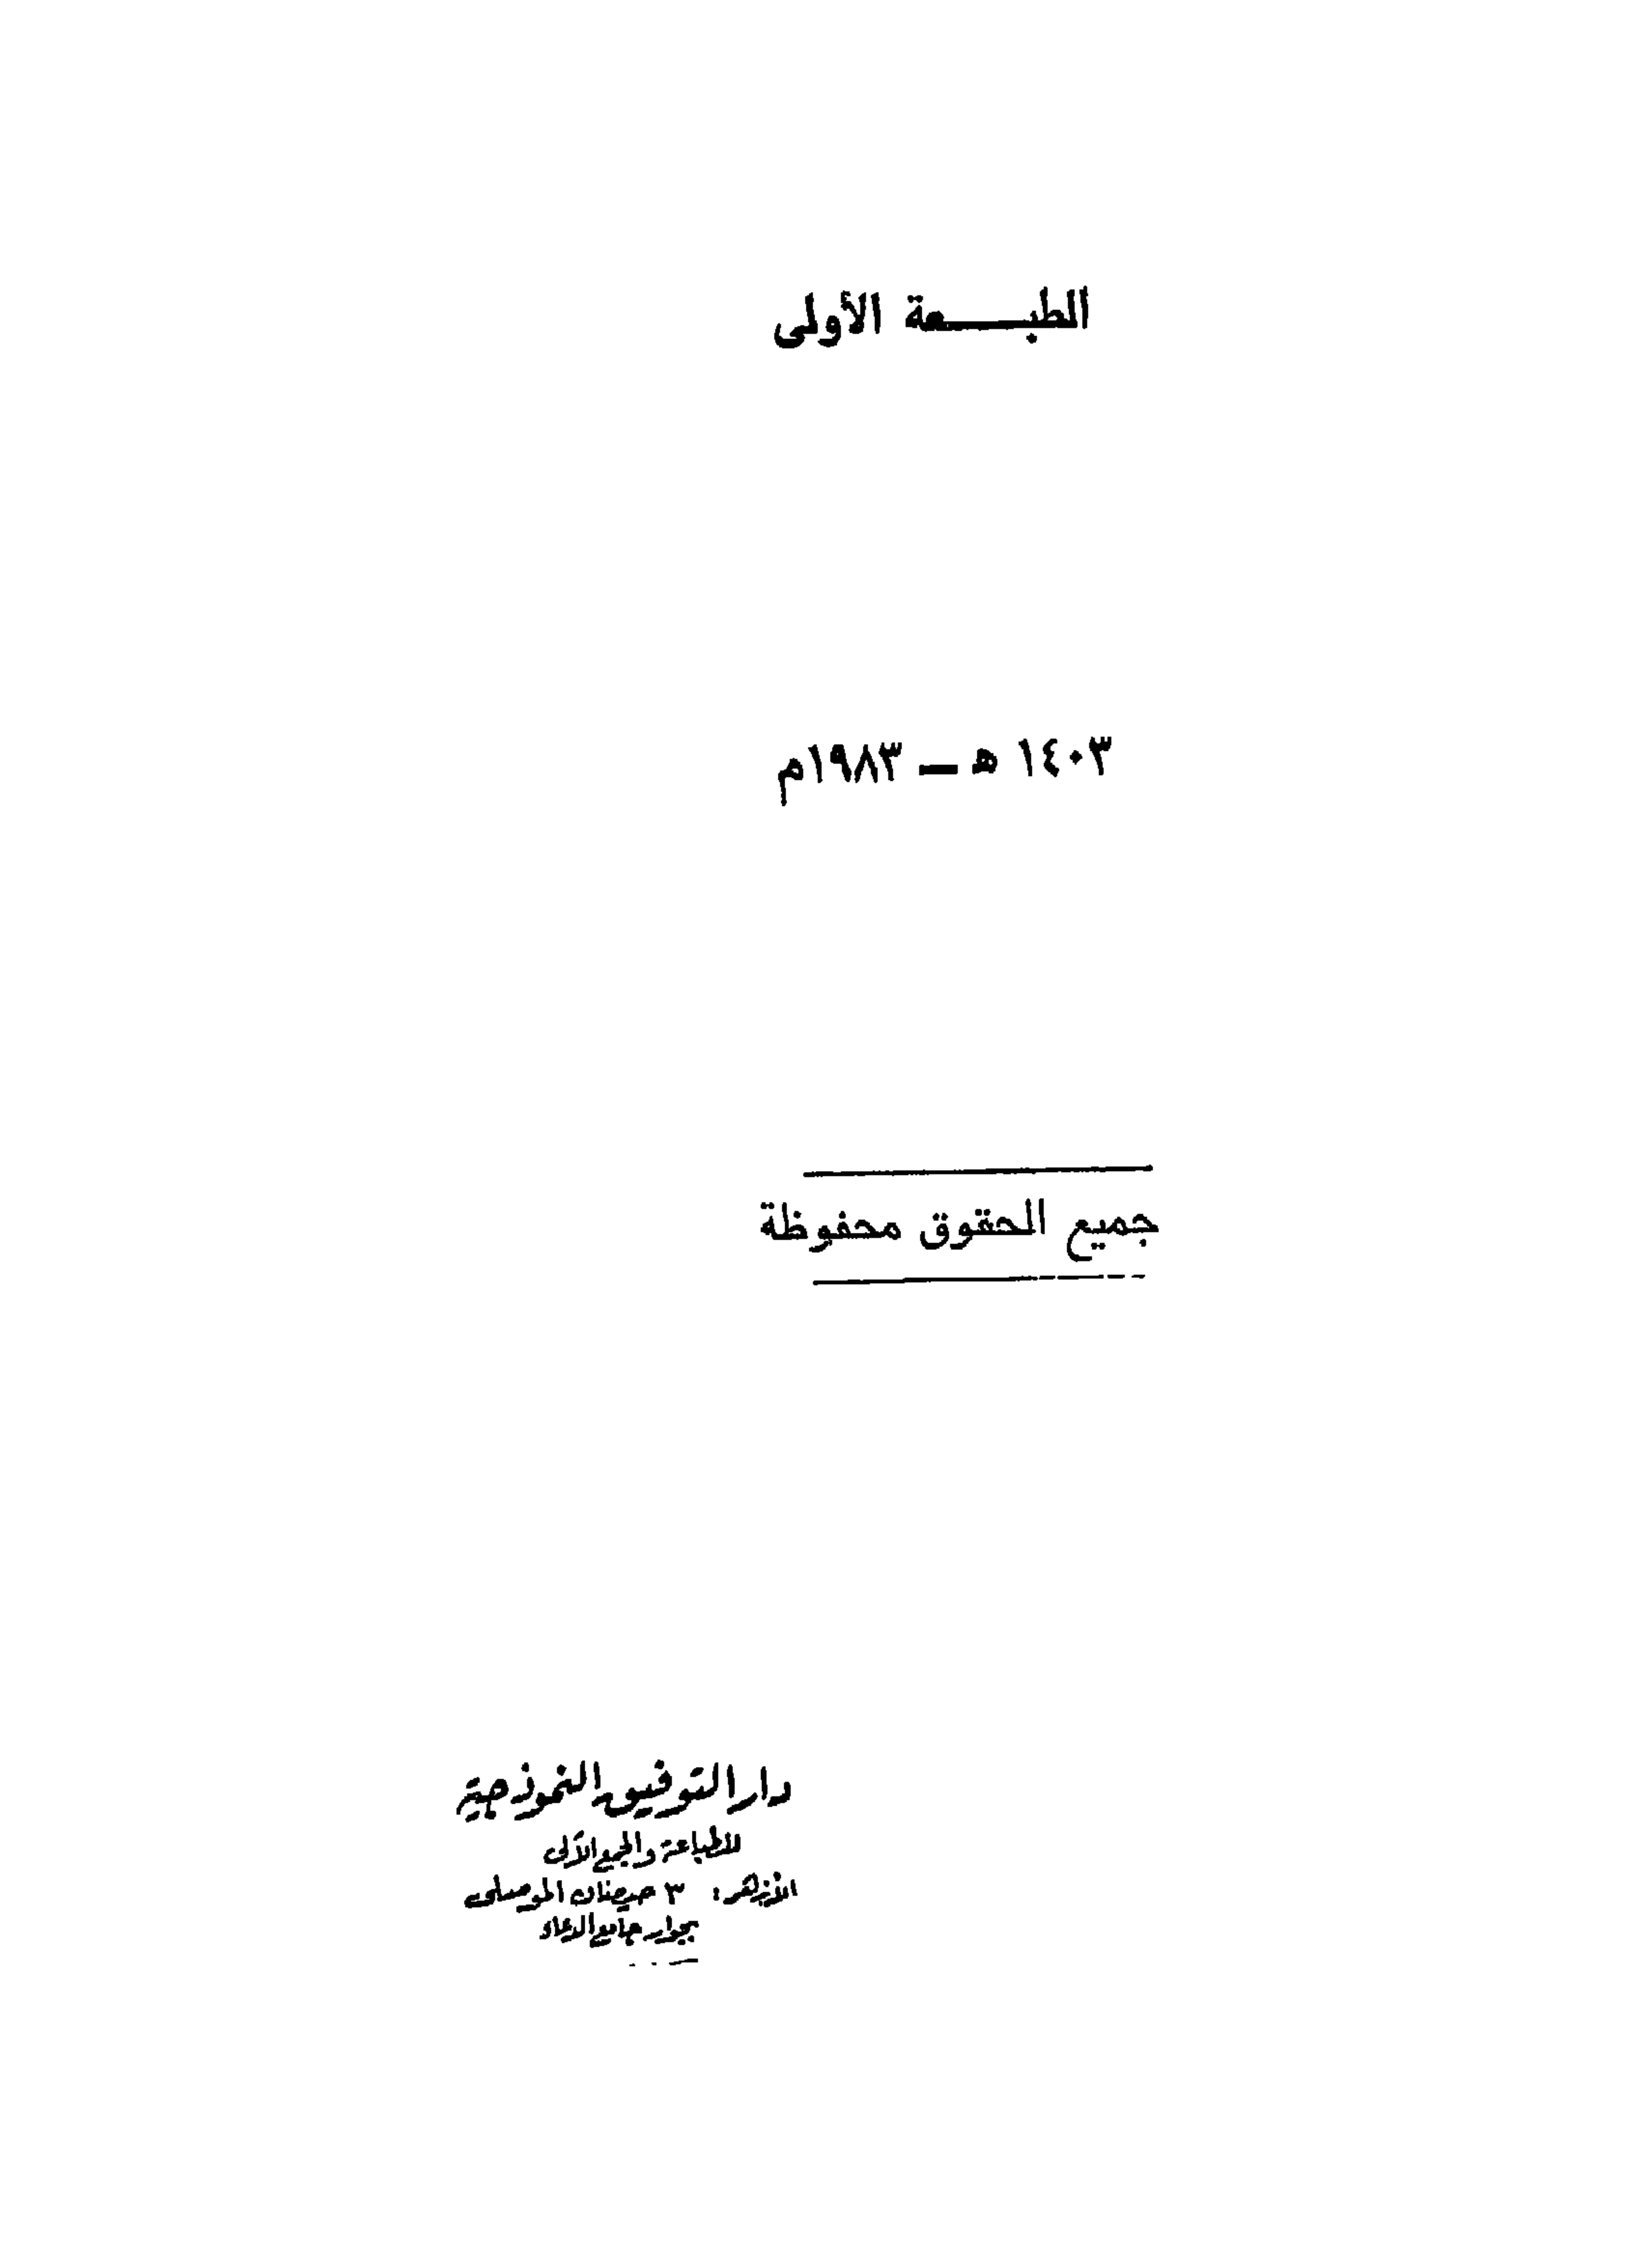 الطبعة الأولى
١٤٠٣ هـ – ١٩٨٣م
جميع الحقوق محفوظة
دار التوفيق النموذجية
للطباعة والجمع الآلى
الأزهر: ٣ حيضان الموصلى
بجوار جامع الدعاء